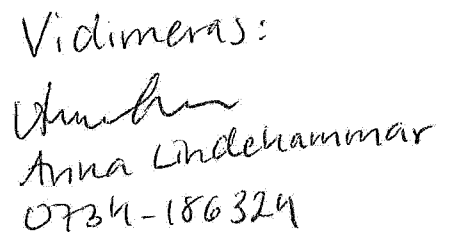 Vidimeras:
Anna Lindehammar
0734-186324